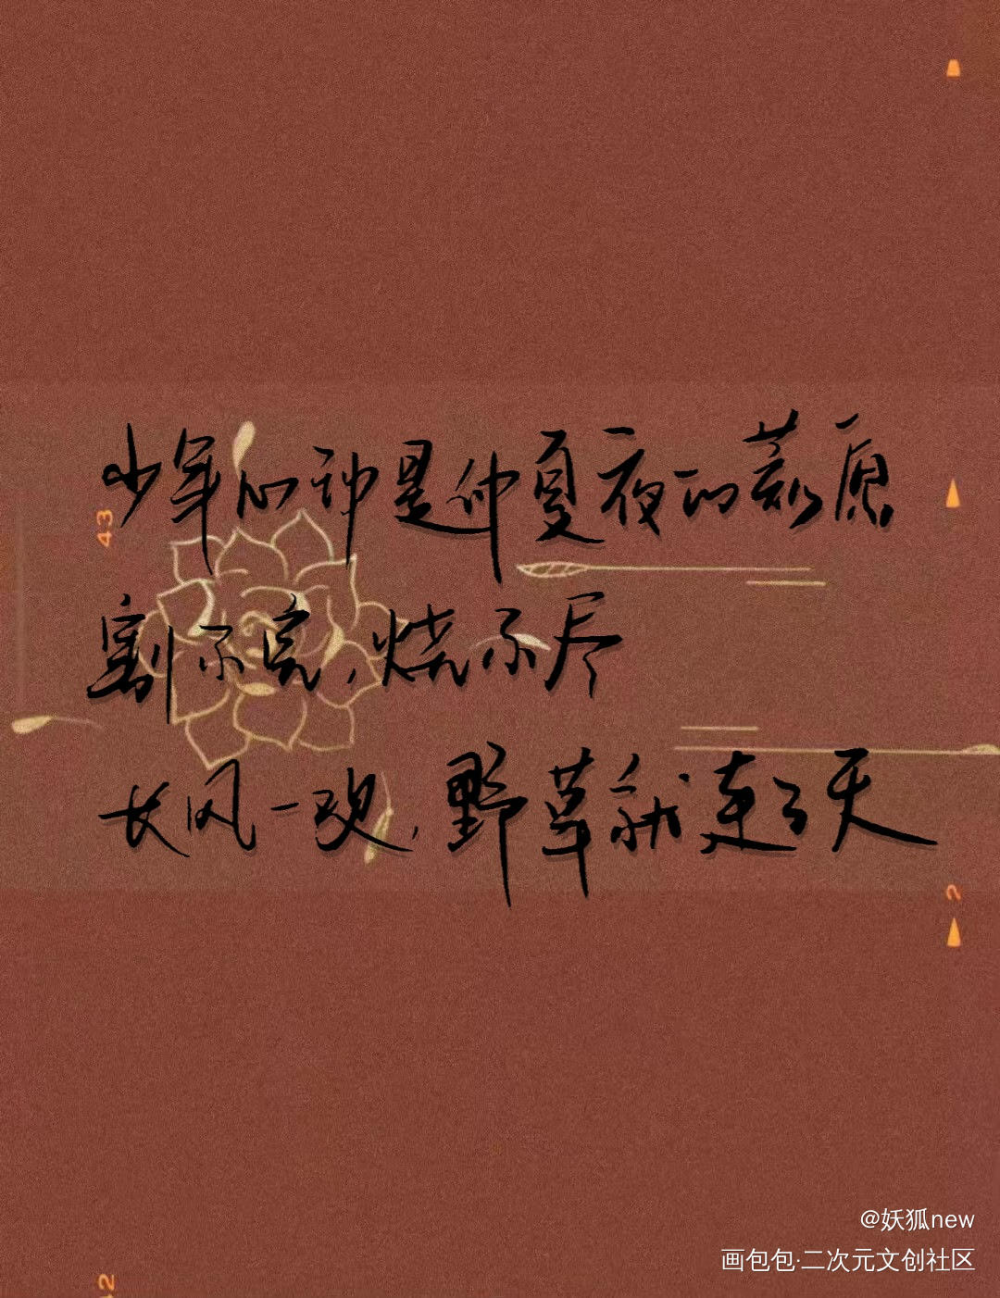 少年心神是仲夏夜的荒原
43
割不完,烧不尽
长风一吹,野草就连了天
2
@妖狐new
画包包·二次元文创社区